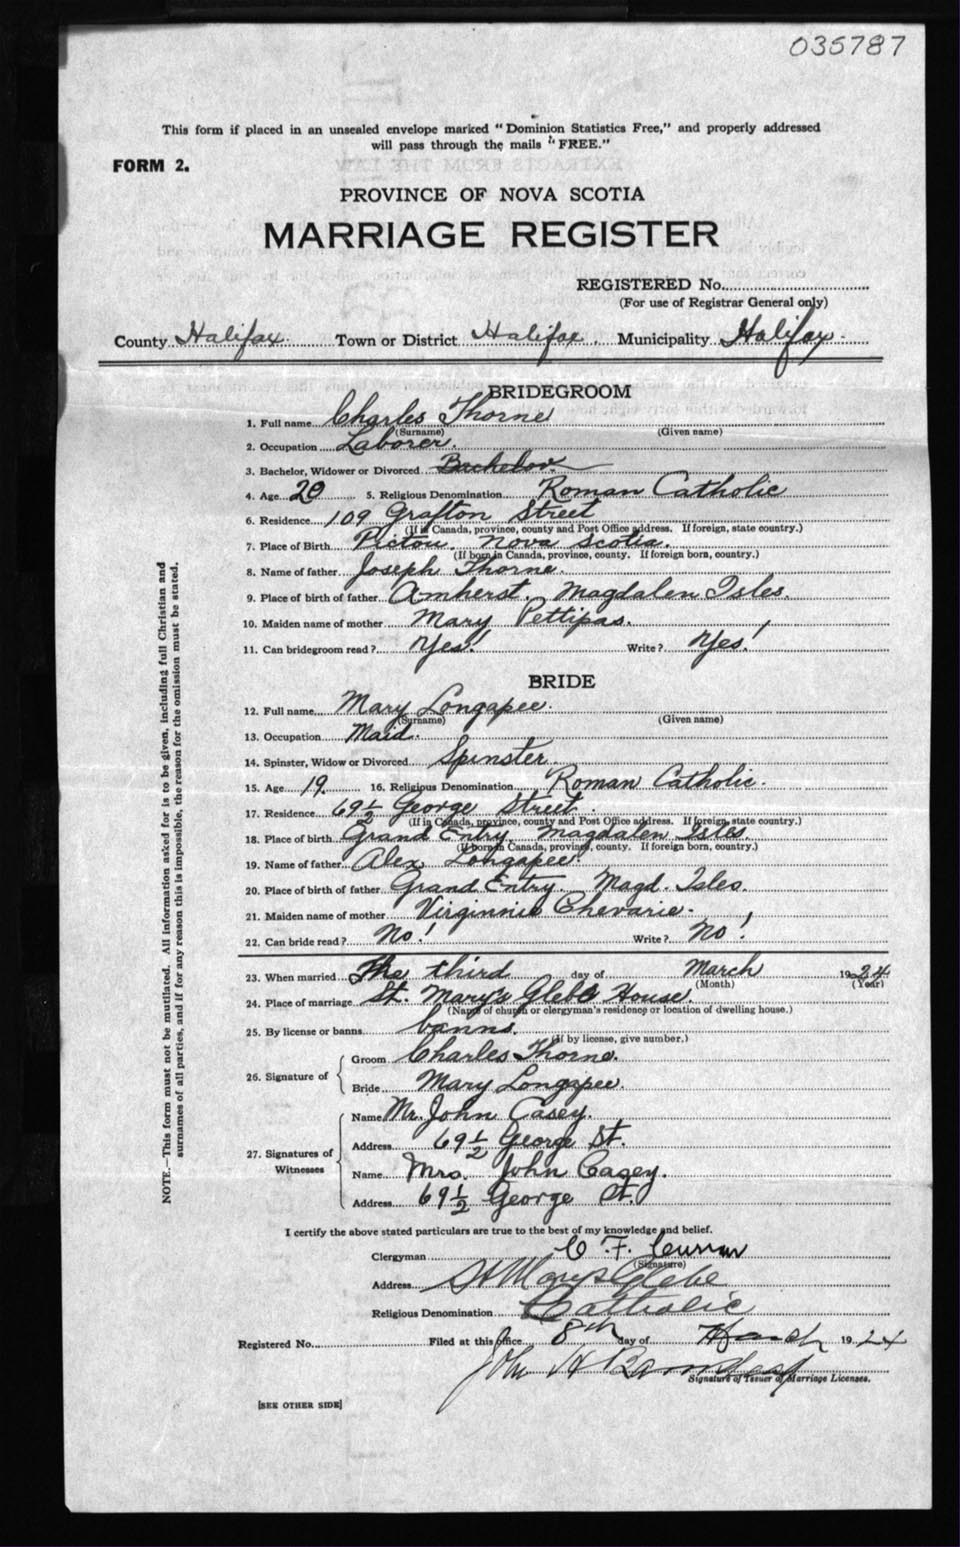 035787
This form if placed in an unsealed envelope marked "Dominion Statistics Free," and properly addressed
will pass through the mails "FREE."
FORM 2.
PROVINCE OF NOVA SCOTIA
MARRIAGE REGISTER
REGISTERED No.
(For use of Registrar General only)
County Halifax. Town or District Halifax. Municipality Halifax.
BRIDEGROOM
1. Full name Charles Thorne
(Surname) (Given name)
2. Occupation Laborer.
3. Bachelor, Widower or Divorced Bachelor.
4. Age 20 5. Religious Denomination Roman Catholic
6. Residence 109 Grafton Street
(If in Canada, province, county and Post Office address. If foreign, state country.)
7. Place of Birth Pictou, Nova Scotia.
(If born in Canada, province, county. If foreign born, country.)
8. Name of father Joseph Thorne.
9. Place of birth of father Amherst, Magdalen Isles.
10. Maiden name of mother Mary Pettipas.
11. Can bridegroom read? Yes! Write? Yes!
BRIDE
12. Full name Mary Longapee.
(Surname) (Given name)
13. Occupation Maid.
14. Spinster, Widow or Divorced Spinster.
15. Age 19. 16. Religious Denomination Roman Catholic.
17. Residence 69 1/2 George Street.
(If in Canada, province, county and Post Office address. If foreign, state country.)
18. Place of birth Grand Entry, Magdalen Isles.
(If born in Canada, province, county. If foreign born, country.)
19. Name of father Alex Longapee.
20. Place of birth of father Grand Entry Magd. Isles.
21. Maiden name of mother Virginnie Chevarie.
22. Can bride read? No! Write? No!
23. When married The third day of March 1924
(Month) (Year)
24. Place of marriage St. Mary's Glebe House.
(Name of church or clergyman's residence or location of dwelling house.)
25. By license or banns banns.
(If by license, give number.)
26. Signature of
Groom Charles Thorne.
Bride Mary Longapee.
27. Signatures of Witnesses
Name Mr. John Casey.
Address 69 1/2 George St.
Name Mrs. John Casey.
Address 69 1/2 George St.
I certify the above stated particulars are true to the best of my knowledge and belief.
Clergyman C. F. Curran
(Signature)
Address St Mary's Glebe
Religious Denomination Catholic
Registered No. Filed at this office 8th day of March 1924
John H
Signature of Issuer of Marriage Licenses.
[SEE OTHER SIDE]
NOTE.—This form must not be mutilated. All information asked for is to be given, including full Christian and
surnames of all parties, and if for any reason this is impossible, the reason for the omission must be stated.